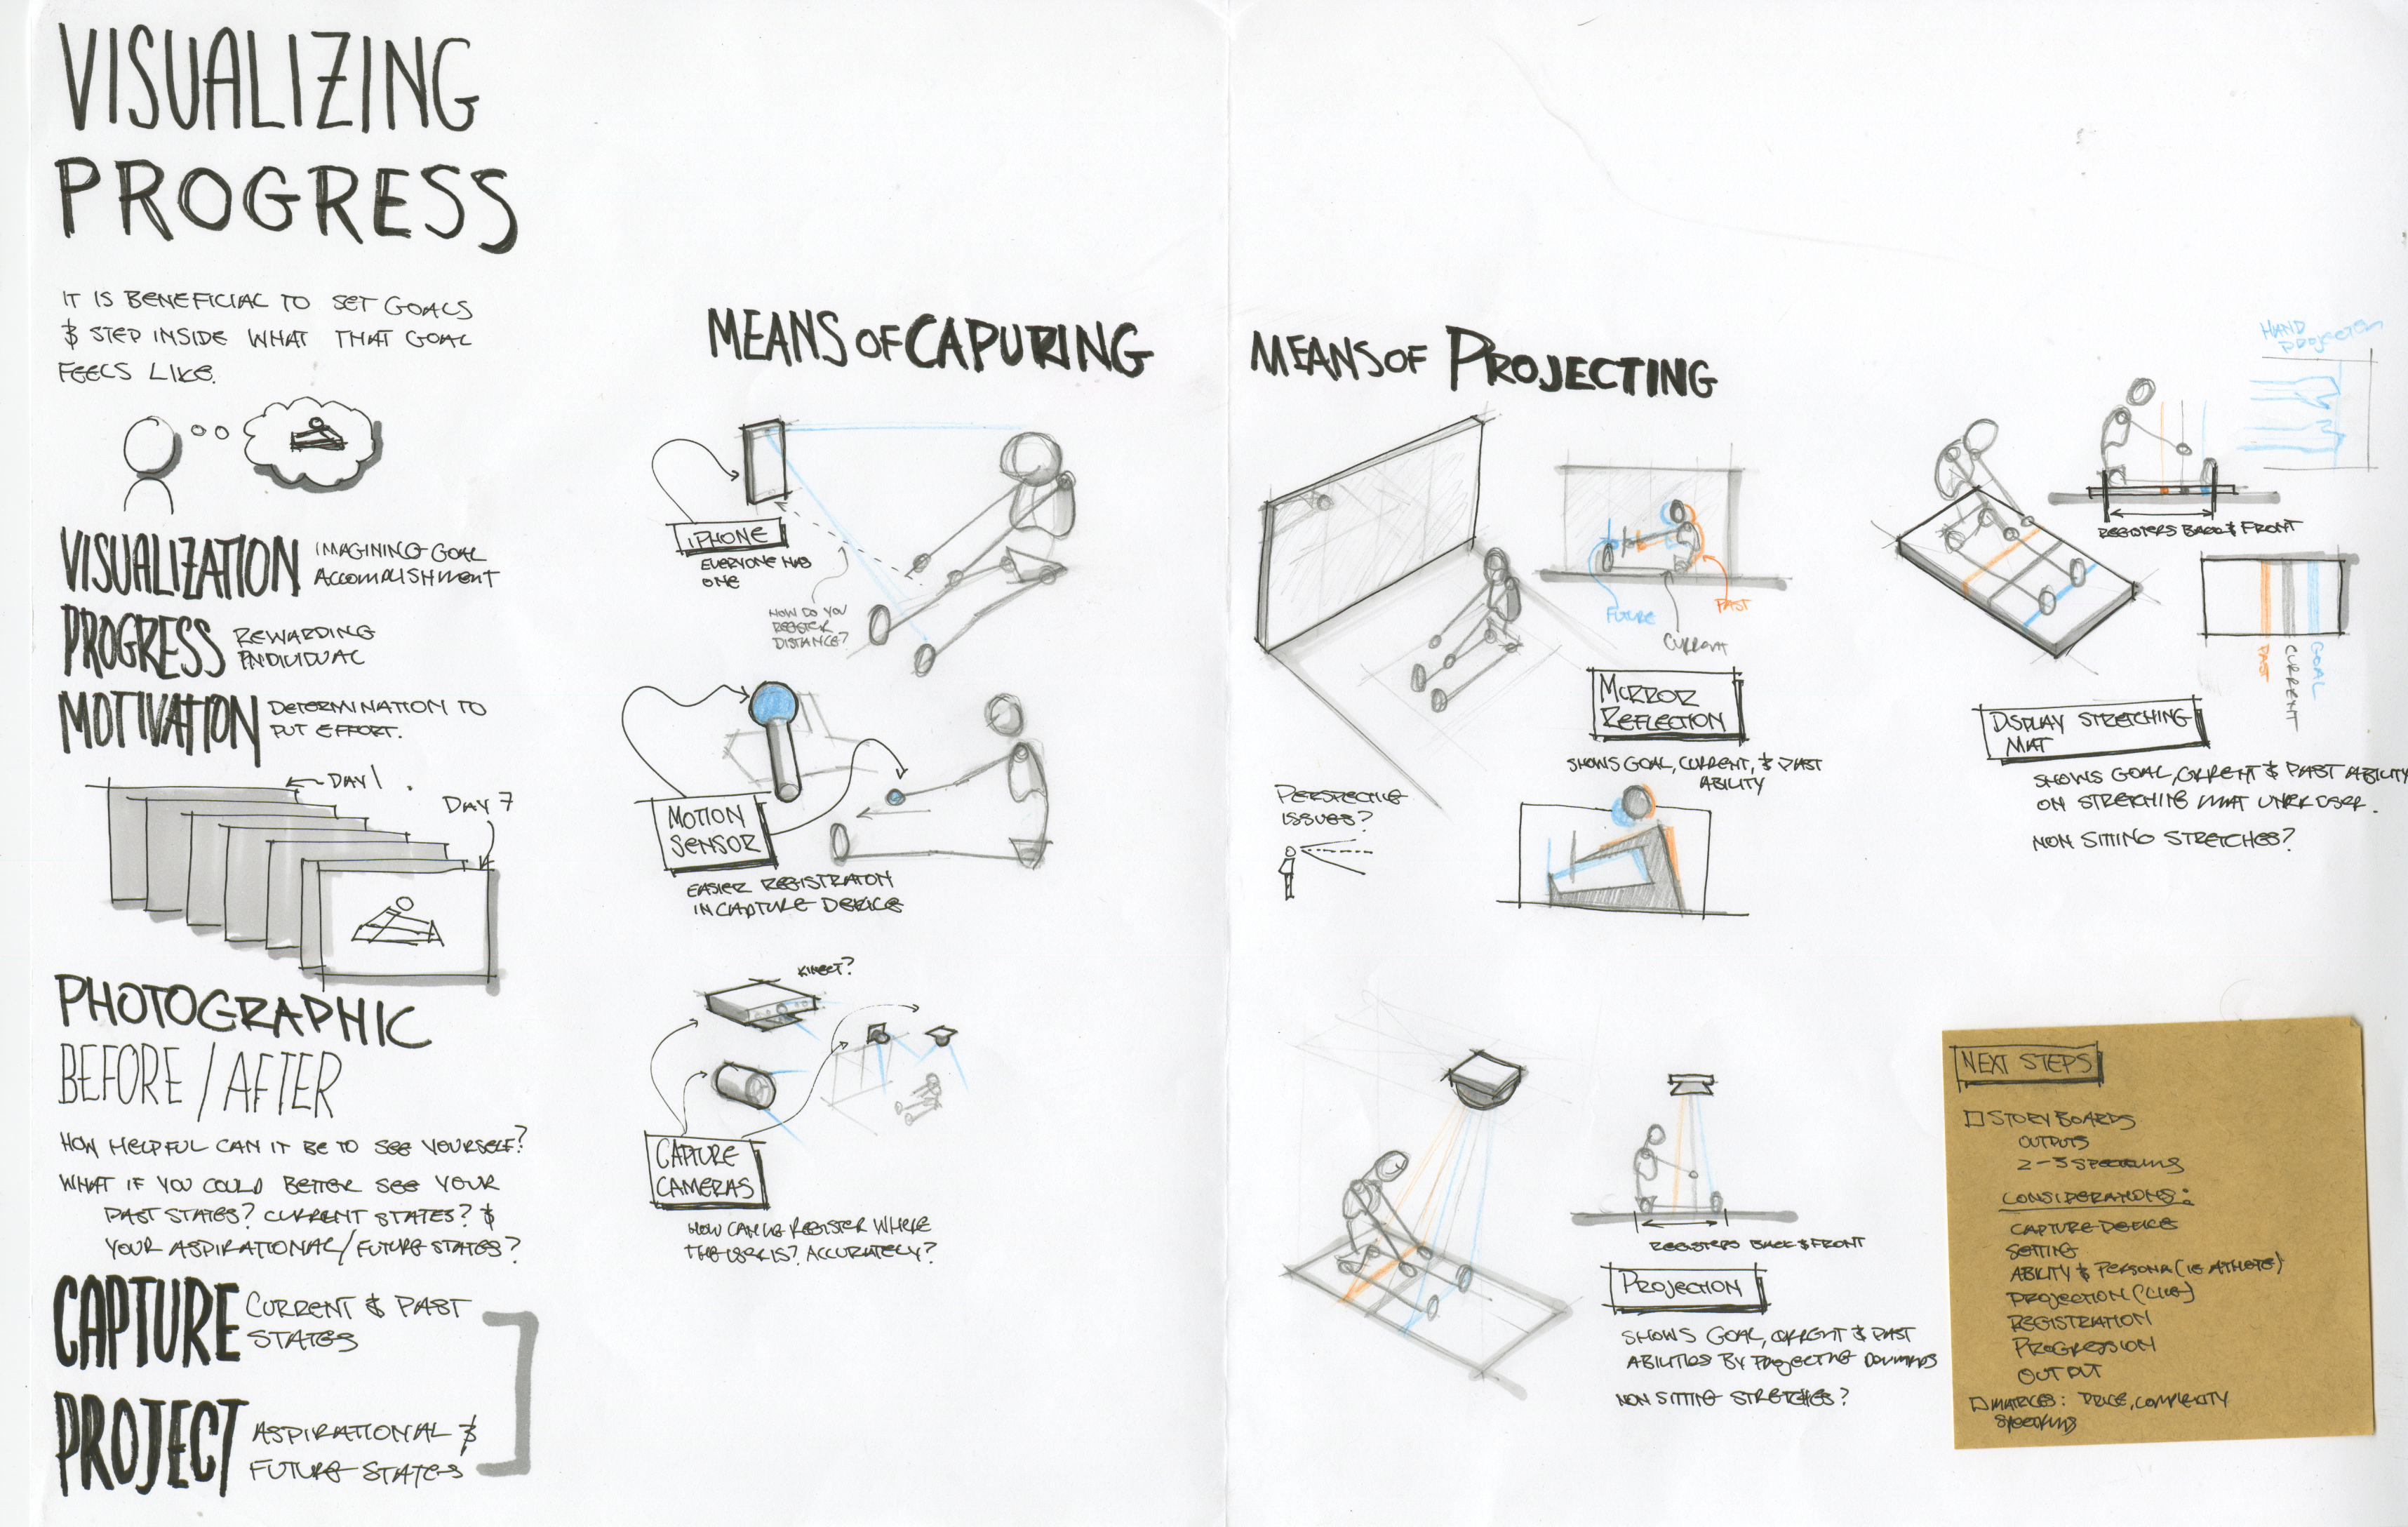 VISUALIZING
PROGRESS
IT IS BENEFICIAL TO SET GOALS
& STEP INSIDE WHAT THAT GOAL
FEELS LIKE.
VISUALIZATION
IMAGINING GOAL
ACCOMPLISHMENT
PROGRESS
REWARDING
INDIVIDUAL
MOTIVATION
DETERMINATION TO
PUT EFFORT.
DAY 1
DAY 7
PHOTOGRAPHIC
BEFORE / AFTER
HOW HELPFUL CAN IT BE TO SEE YOURSELF?
WHAT IF YOU COULD BETTER SEE YOUR
PAST STATES? CURRENT STATES? &
YOUR ASPIRATIONAL/FUTURE STATES?
CAPTURE
CURRENT & PAST
STATES
PROJECT
ASPIRATIONAL &
FUTURE STATES
MEANS OF CAPURING
iPHONE
EVERYONE HAS
ONE
HOW DO YOU
REGISTER
DISTANCE?
MOTION
SENSOR
EASIER REGISTRATON
IN CAPTURE DEVICE
KINECT?
CAPTURE
CAMERAS
HOW CAN WE REGISTER WHERE
THE USER IS? ACCURATELY?
MEANS OF PROJECTING
FUTURE
PAST
CURRENT
MIRROR
REFLECTION
SHOWS GOAL, CURRENT, & PAST
ABILITY
PERSPECTIVE
ISSUES?
HAND
PROJECTED
REGISTERS BACK & FRONT
PAST
CURRENT
GOAL
DISPLAY STRETCHING
MAT
SHOWS GOAL, CURRENT & PAST ABILITY
ON STRETCHING MAT UNDER USER.
NON SITTING STRETCHES?
REGISTERS BACK & FRONT
PROJECTION
SHOWS GOAL, CURRENT & PAST
ABILITIES BY PROJECTING DOWNWARDS
NON SITTING STRETCHES?
NEXT STEPS
STORY BOARDS
OUTPUTS
CONSIDERATIONS:
CAPTURE DEVICE
SETTING
ABILITY & PERSONA (IE ATHLETE)
PROJECTION
REGISTRATION
PROGRESSION
OUTPUT
MATRICES: PRICE, COMPLEXITY